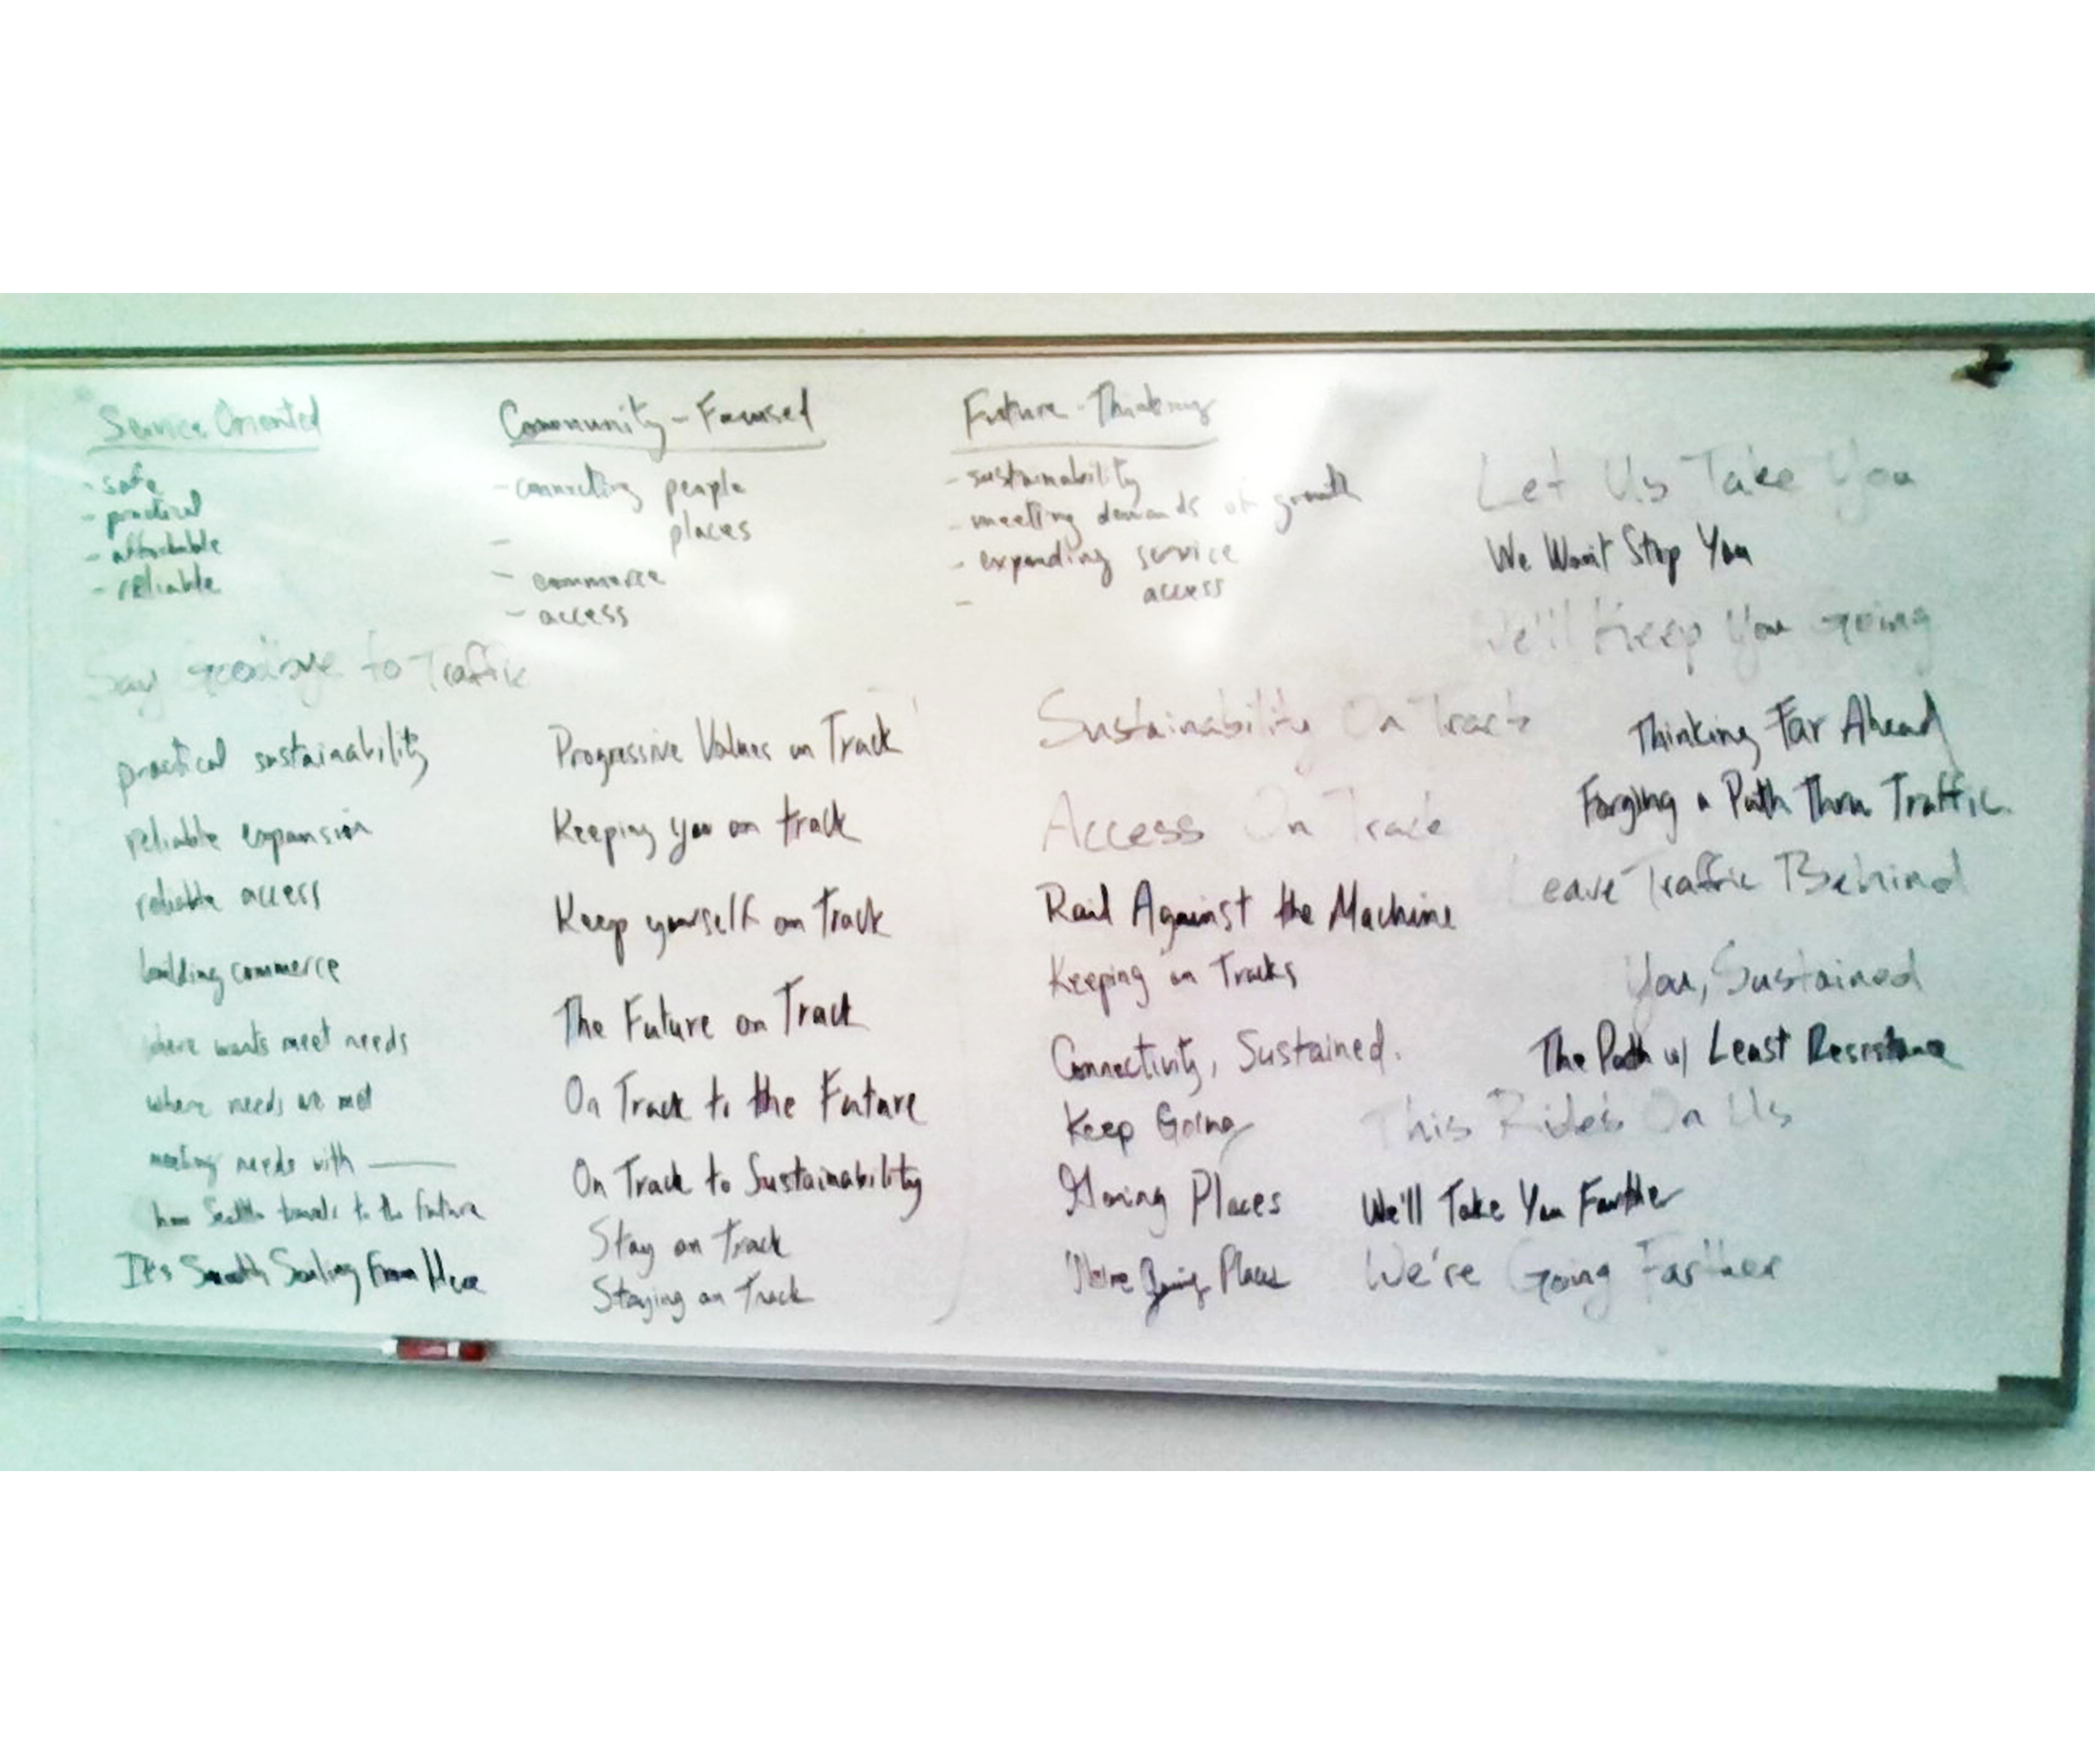 Service Oriented
- safe
- practical
- affordable
- reliable
Community-Focused
- connecting people
- places
- commerce
- access
Future-Thinking
- sustainability
- meeting demands of growth
- expanding service
- access
Let Us Take You
We Won't Stop You
We'll Keep You Going
Say Goodbye to Traffic
practical sustainability
reliable expansion
reliable access
building commerce
where wants meet needs
where needs are met
meeting needs with
how Seattle travels to the future
It's Smooth Sailing From Here
Progressive Values on Track
Keeping you on track
Keep yourself on Track
The Future on Track
On Track to the Future
On Track to Sustainability
Stay on Track
Staying on Track
Sustainability On Track
Access On Track
Rail Against the Machine
Keeping on Tracks
Connectivity, Sustained.
Keep Going
Going Places
We're Going Places
Thinking Far Ahead
Forging a Path Thru Traffic.
Leave Traffic Behind
You, Sustained
The Path w/ Least Resistance
This Rides On Us
We'll Take You Farther
We're Going Farther